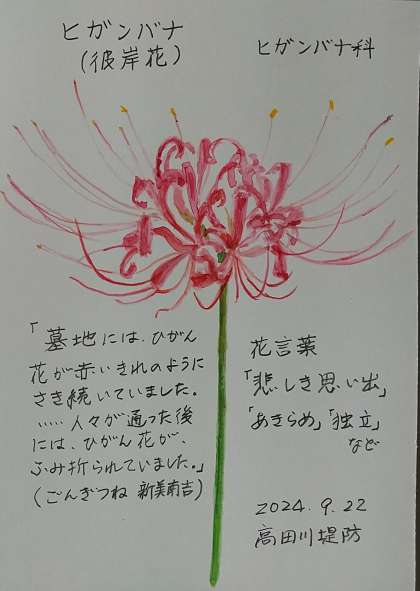 ヒガンバナ
(彼岸花)
ヒガンバナ科
「墓地には、ひがん
花が赤いきれのように
さき続いていました。
‥‥‥人々が通った後
には、ひがん花が、
ふみ折られていました。」
(ごんぎつね 新美南吉)
花言葉
「悲しき思い出」
「あきらめ」「独立」
など
2024.9.22
高田川堤防